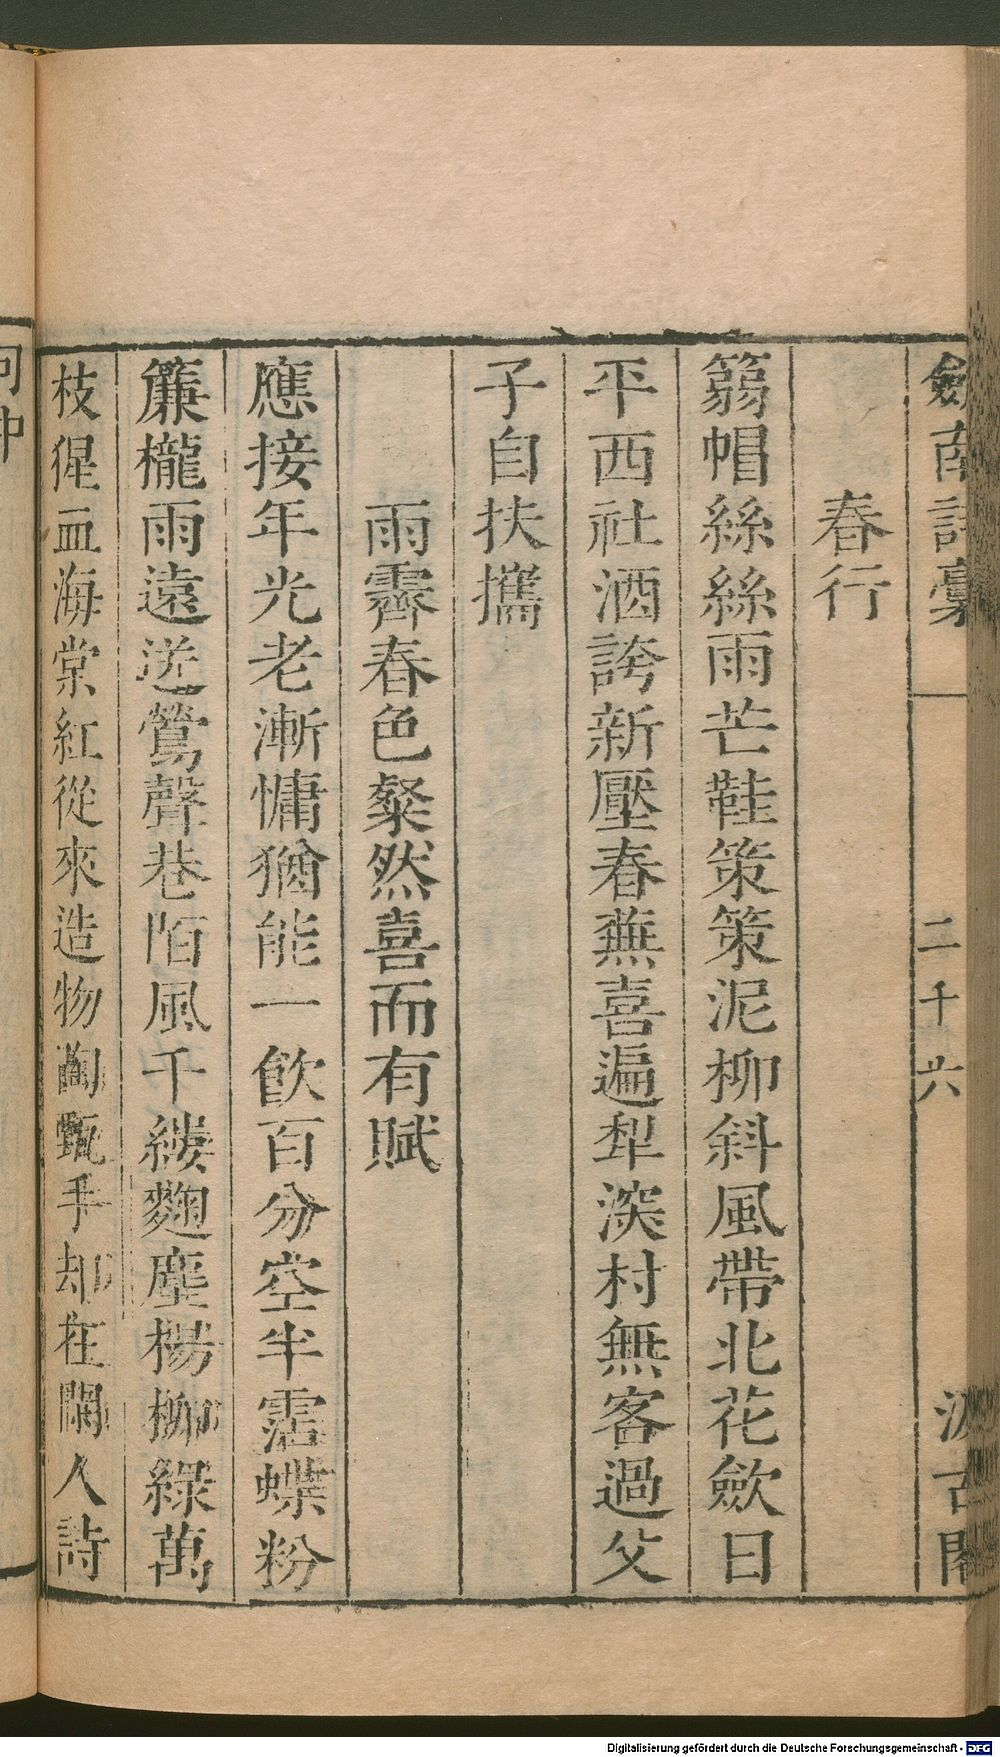 劒南詩稾
二千六
汲古閣
春行
篛帽絲絲雨芒鞋策策泥柳斜風帶北花歛日
平西社酒誇新壓春蕪喜遍犂深村無客過父
子自扶攜
雨霽春色粲然喜而有賦
應接年光老漸慵猶能一飲百分空半霑蝶粉
簾櫳雨遠送鶯聲巷陌風千縷麴塵楊柳綠萬
枝猩血海棠紅從來造物陶甄手却在閑人詩
句中
Digitalisierung gefördert durch die Deutsche Forschungsgemeinschaft - DFG